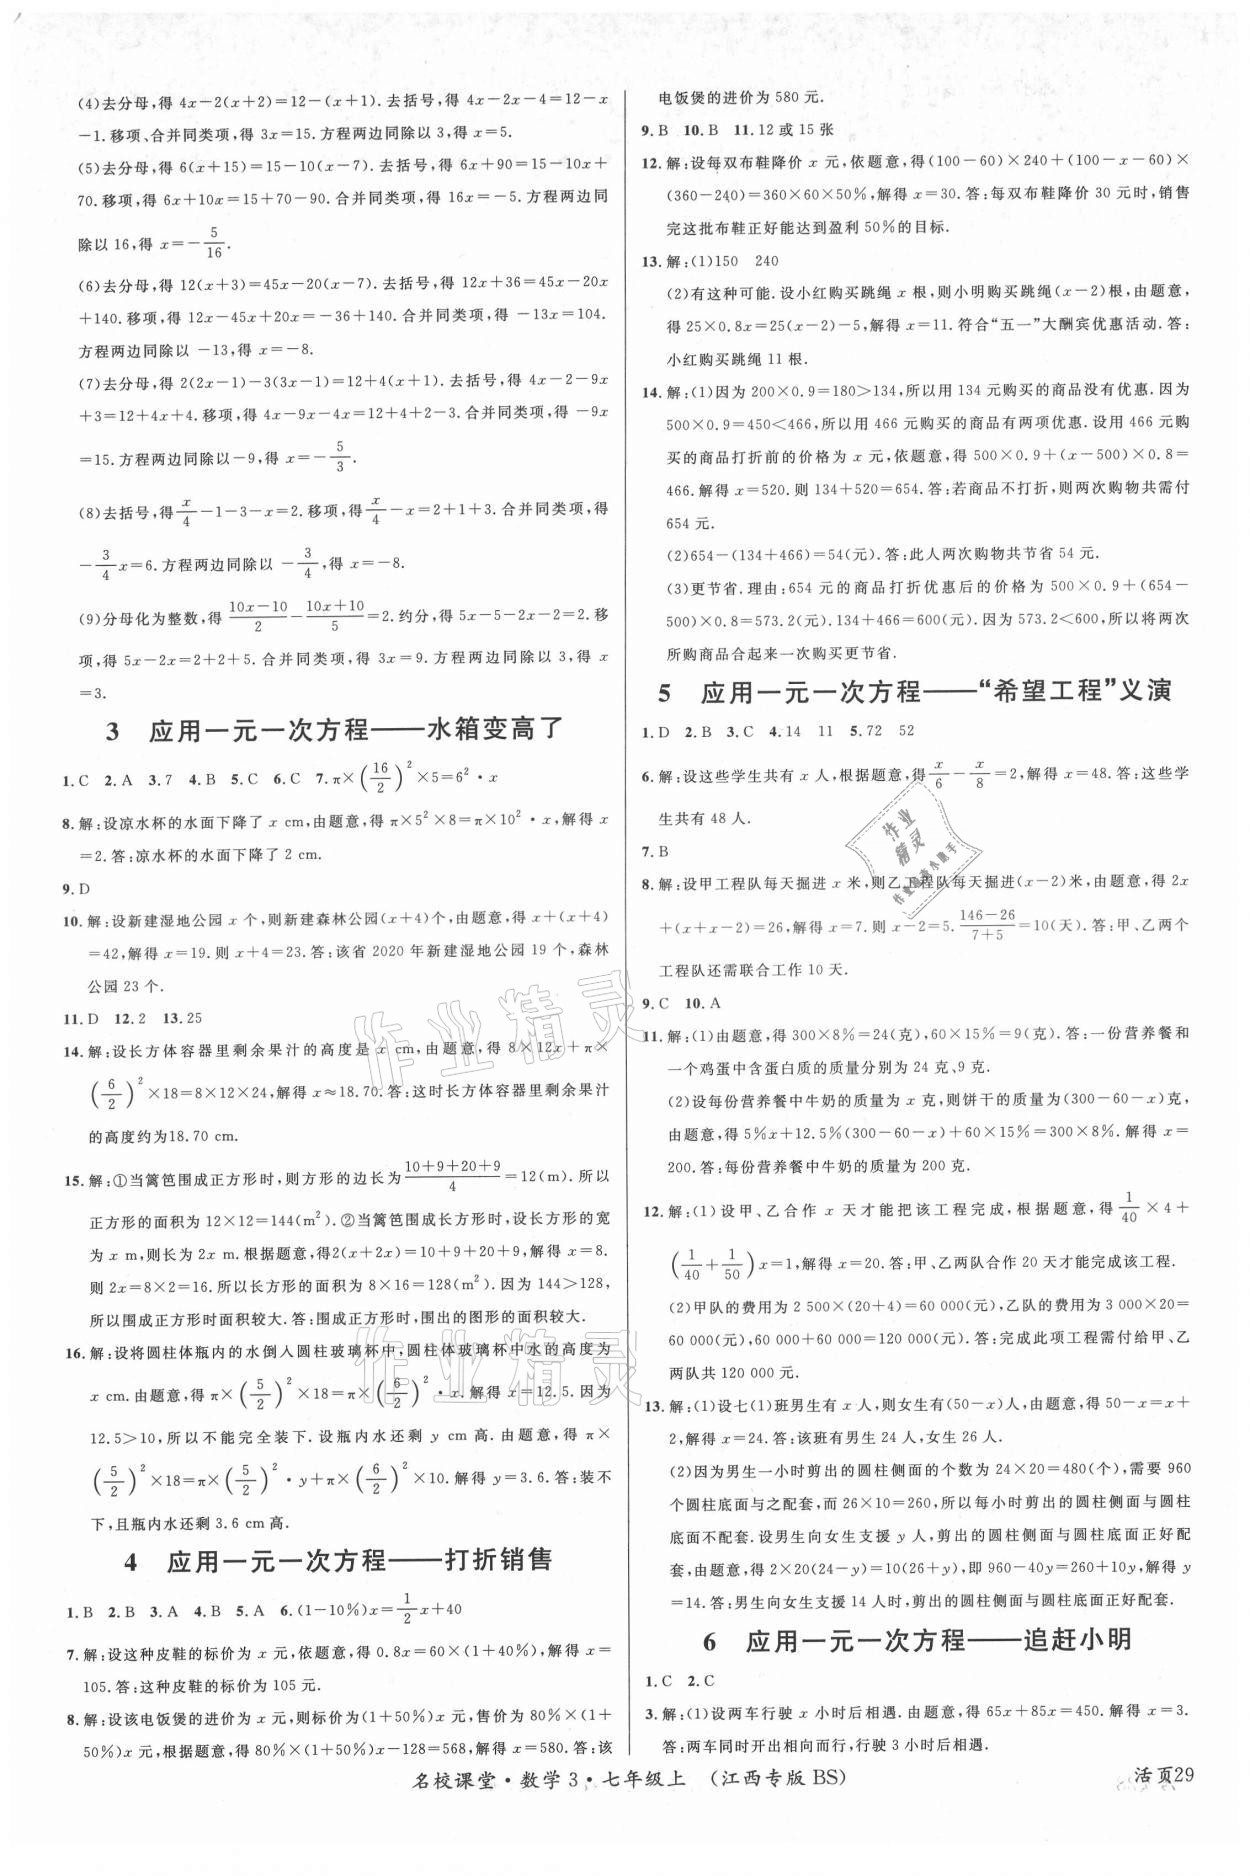 (4)去分母,得 4x−2(x+2)=12−(x+1).去括号,得 4x−2x−4=12−x
−1.移项、合并同类项,得 3x=15.方程两边同除以 3,得 x=5.
(5)去分母,得 6(x+15)=15−10(x−7).去括号,得 6x+90=15−10x+
70.移项,得 6x+10x=15+70−90.合并同类项,得 16x=−5.方程两边同
除以 16,得 x=−5/16.
(6)去分母,得 12(x+3)=45x−20(x−7).去括号,得 12x+36=45x−20x
+140.移项,得 12x−45x+20x=−36+140.合并同类项,得 −13x=104.
方程两边同除以 −13,得 x=−8.
(7)去分母,得 2(2x−1)−3(3x−1)=12+4(x+1).去括号,得 4x−2−9x
+3=12+4x+4.移项,得 4x−9x−4x=12+4+2−3.合并同类项,得 −9x
=15.方程两边同除以−9,得 x=−5/3.
(8)去括号,得 x/4−1−3−x=2.移项,得 x/4−x=2+1+3.合并同类项,得
−3/4x=6.方程两边同除以 −3/4,得 x=−8.
(9)分母化为整数,得 (10x−10)/2−(10x+10)/5=2.约分,得 5x−5−2x−2=2.移
项,得 5x−2x=2+2+5.合并同类项,得 3x=9.方程两边同除以 3,得 x
=3.
3 应用一元一次方程——水箱变高了
1.C 2.A 3.7 4.B 5.C 6.C 7.π×(16/2)²×5=6²·x
8.解:设凉水杯的水面下降了 x cm,由题意,得 π×5²×8=π×10²·x,解得 x
=2.答:凉水杯的水面下降了 2 cm.
9.D
10.解:设新建湿地公园 x 个,则新建森林公园(x+4)个,由题意,得 x+(x+4)
=42,解得 x=19.则 x+4=23.答:该省 2020 年新建湿地公园 19 个,森林
公园 23 个.
11.D 12.2 13.25
14.解:设长方体容器里剩余果汁的高度是 x cm,由题意,得 8×12x+π×
(6/2)²×18=8×12×24,解得 x≈18.70.答:这时长方体容器里剩余果汁
的高度约为18.70 cm.
15.解:①当篱笆围成正方形时,则方形的边长为(10+9+20+9)/4=12(m).所以
正方形的面积为 12×12=144(m²).②当篱笆围成长方形时,设长方形的宽
为 x m,则长为 2x m.根据题意,得2(x+2x)=10+9+20+9,解得 x=8.
则 2x=8×2=16.所以长方形的面积为 8×16=128(m²).因为 144>128,
所以围成正方形时面积较大.答:围成正方形时,围出的图形的面积较大.
16.解:设将圆柱体瓶内的水倒人圆柱玻璃杯中,圆柱体玻璃杯中水的高度为
x cm.由题意,得 π×(5/2)²×18=π×(6/2)²·x.解得 x=12.5.因为
12.5>10,所以不能完全装下.设瓶内水还剩 y cm 高.由题意,得 π×
(5/2)²×18=π×(5/2)²·y+π×(6/2)²×10.解得 y=3.6.答:装不
下,且瓶内水还剩 3.6 cm 高.
4 应用一元一次方程——打折销售
1.B 2.B 3.A 4.B 5.A 6.(1−10%)x=1/2x+40
7.解:设这种皮鞋的标价为 x 元,依题意,得 0.8x=60×(1+40%),解得 x=
105.答:这种皮鞋的标价为 105 元.
8.解:设该电饭煲的进价为 x 元,则标价为(1+50%)x 元,售价为 80%×(1+
50%)x 元,根据题意,得 80%×(1+50%)x−128=568,解得 x=580.答:该
电饭煲的进价为 580 元.
9.B 10.B 11.12 或 15 张
12.解:设每双布鞋降价 x 元,依题意,得(100−60)×240+(100−x−60)×
(360−240)=360×60×50%,解得 x=30.答:每双布鞋降价 30 元时,销售
完这批布鞋正好能达到盈利 50%的目标.
13.解:(1)150 240
(2)有这种可能.设小红购买跳绳 x 根,则小明购买跳绳(x−2)根,由题意,
得 25×0.8x=25(x−2)−5,解得 x=11.符合“五一”大酬宾优惠活动.答:
小红购买跳绳 11 根.
14.解:(1)因为 200×0.9=180>134,所以用 134 元购买的商品没有优惠.因为
500×0.9=450<466,所以用 466 元购买的商品有两项优惠.设用 466 元购
买的商品打折前的价格为 x 元,依题意,得 500×0.9+(x−500)×0.8=
466.解得 x=520.则 134+520=654.答:若商品不打折,则两次购物共需付
654 元.
(2)654−(134+466)=54(元).答:此人两次购物共节省 54 元.
(3)更节省.理由:654 元的商品打折优惠后的价格为 500×0.9+(654−
500)×0.8=573.2(元),134+466=600(元).因为 573.2<600,所以将两次
所购商品合起来一次购买更节省.
5 应用一元一次方程——“希望工程”义演
1.D 2.B 3.C 4.14 11 5.72 52
6.解:设这些学生共有 x 人,根据题意,得x/6−x/8=2,解得 x=48.答:这些学
生共有 48 人.
7.B
8.解:设甲工程队每天掘进 x 米,则乙工程队每天掘进(x−2)米,由题意,得 2x
+(x+x−2)=26,解得 x=7.则 x−2=5.(146−26)/(7+5)=10(天).答:甲、乙两个
工程队还需联合工作 10 天.
9.C 10.A
11.解:(1)由题意,得 300×8%=24(克),60×15%=9(克).答:一份营养餐和
一个鸡蛋中含蛋白质的质量分别为 24 克、9 克.
(2)设每份营养餐中牛奶的质量为 x 克,则饼干的质量为(300−60−x)克,
由题意,得 5%x+12.5%(300−60−x)+60×15%=300×8%.解得 x=
200.答:每份营养餐中牛奶的质量为 200 克.
12.解:(1)设甲、乙合作 x 天才能把该工程完成,根据题意,得 1/40×4+
(1/40+1/50)x=1,解得 x=20.答:甲、乙两队合作 20 天才能完成该工程.
(2)甲队的费用为 2 500×(20+4)=60 000(元),乙队的费用为 3 000×20=
60 000(元),60 000+60 000=120 000(元).答:完成此项工程需付给甲、乙
两队共 120 000 元.
13.解:(1)设七(1)班男生有 x 人,则女生有(50−x)人,由题意,得50−x=x+
2,解得 x=24.答:该班有男生 24 人,女生 26 人.
(2)因为男生一小时剪出的圆柱侧面的个数为 24×20=480(个),需要 960
个圆柱底面与之配套,而 26×10=260,所以每小时剪出的圆柱侧面与圆柱
底面不配套.设男生向女生支援 y 人,剪出的圆柱侧面与圆柱底面正好配
套,由题意,得 2×20(24−y)=10(26+y),即 960−40y=260+10y,解得 y
=14.答:男生向女生支援 14 人时,剪出的圆柱侧面与圆柱底面正好配套.
6 应用一元一次方程——追赶小明
1.C 2.C
3.解:(1)设两车行驶 x 小时后相遇.由题意,得 65x+85x=450,解得 x=3.
答:两车同时开出相向而行,行驶 3 小时后相遇.
名校课堂·数学3·七年级上 (江西专版 BS) 活页29
作业精灵
作业精灵
作业
精灵